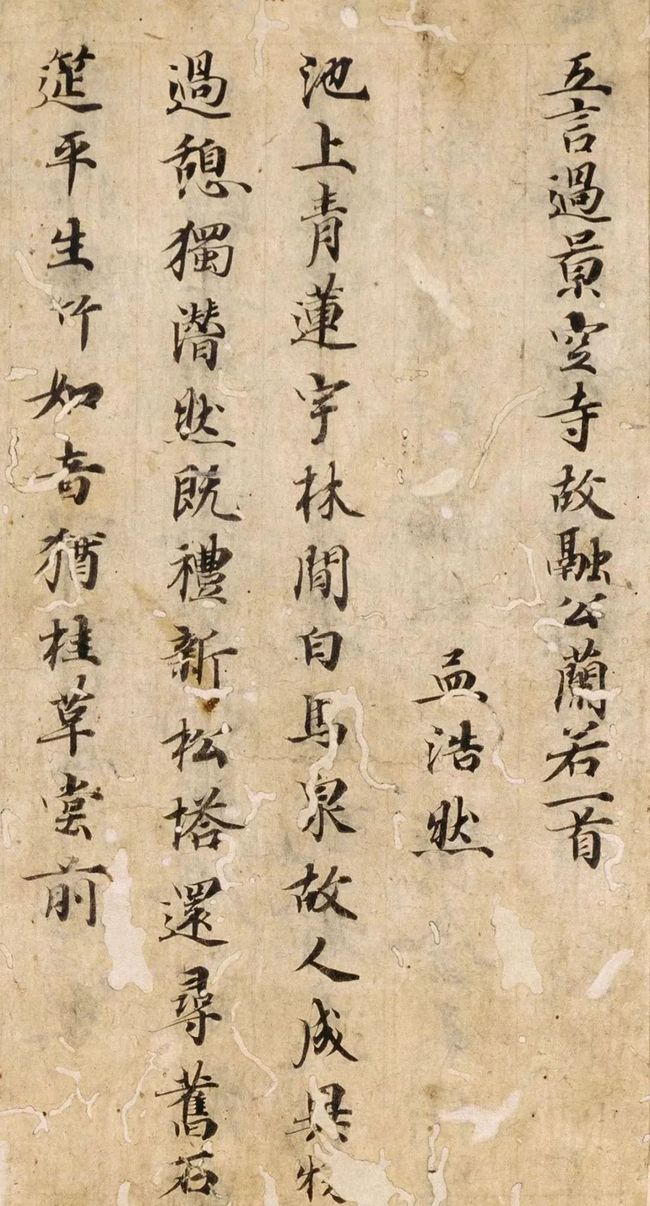 五言過景空寺故融公蘭若一首
孟浩然
池上青蓮宇林間白馬泉故人成異物
過憩獨潸然既禮新松塔還尋舊石
筵平生竹如意猶挂草堂前